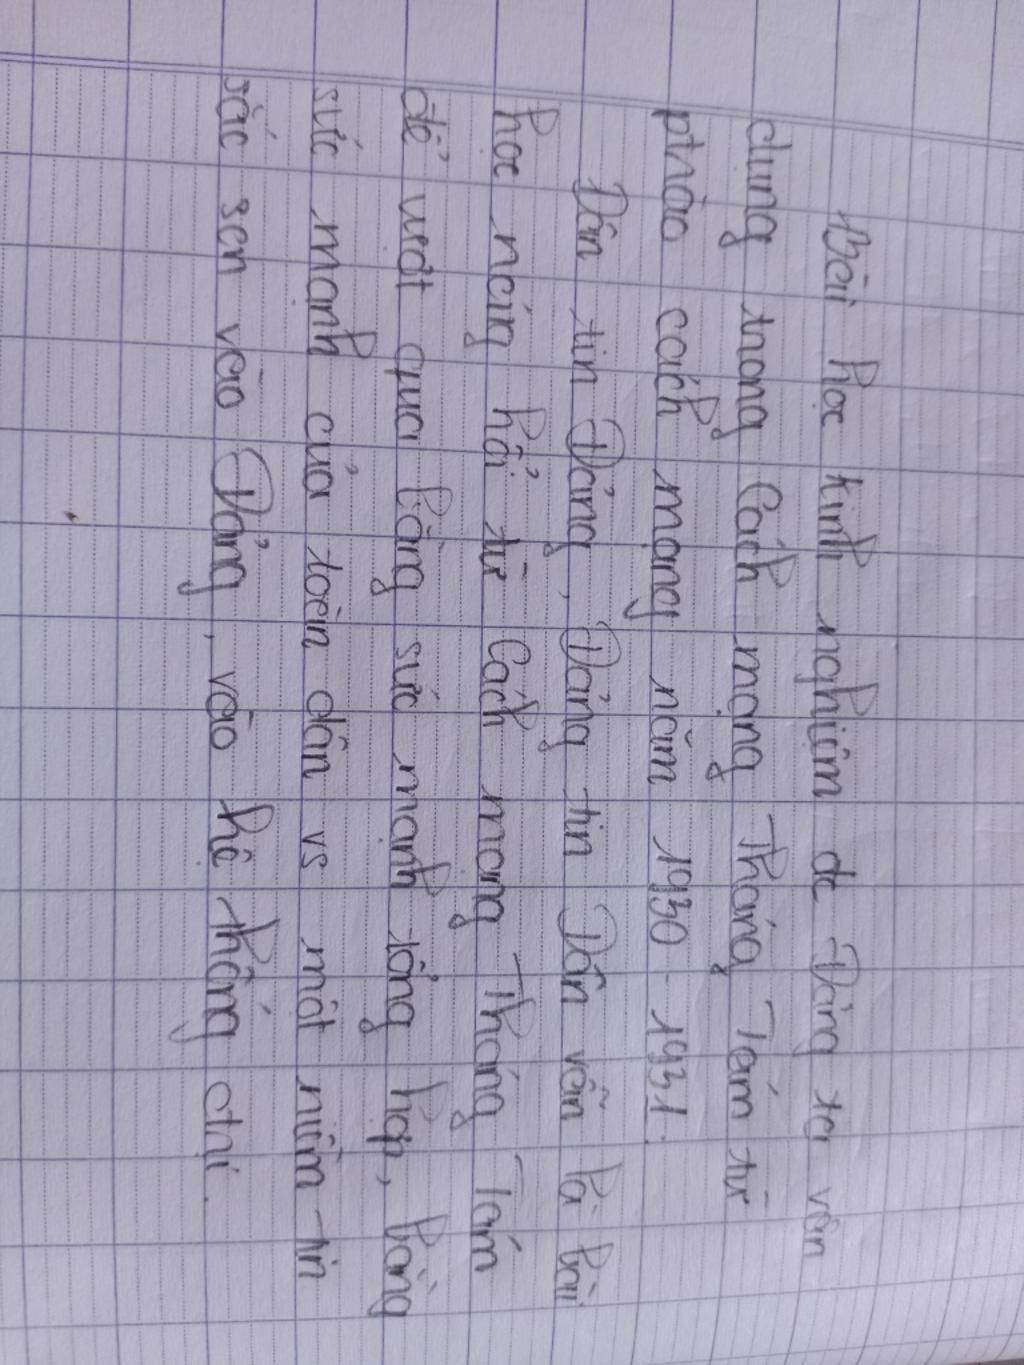 Bài học kinh nghiệm đc Đảng ta vận
dụng trong Cách mạng Tháng Tám từ
phào cách mạng năm 1930 - 1931.
Dân tin Đảng, Đảng tin Dân vẫn là bài
học nóng hổi từ Cách mạng Tháng Tám
để vượt qua bằng sức mạnh tổng hợp, bằng
sức mạnh của toàn dân vs một niềm tin
sắc son vào Đảng, vào hệ thống chí.